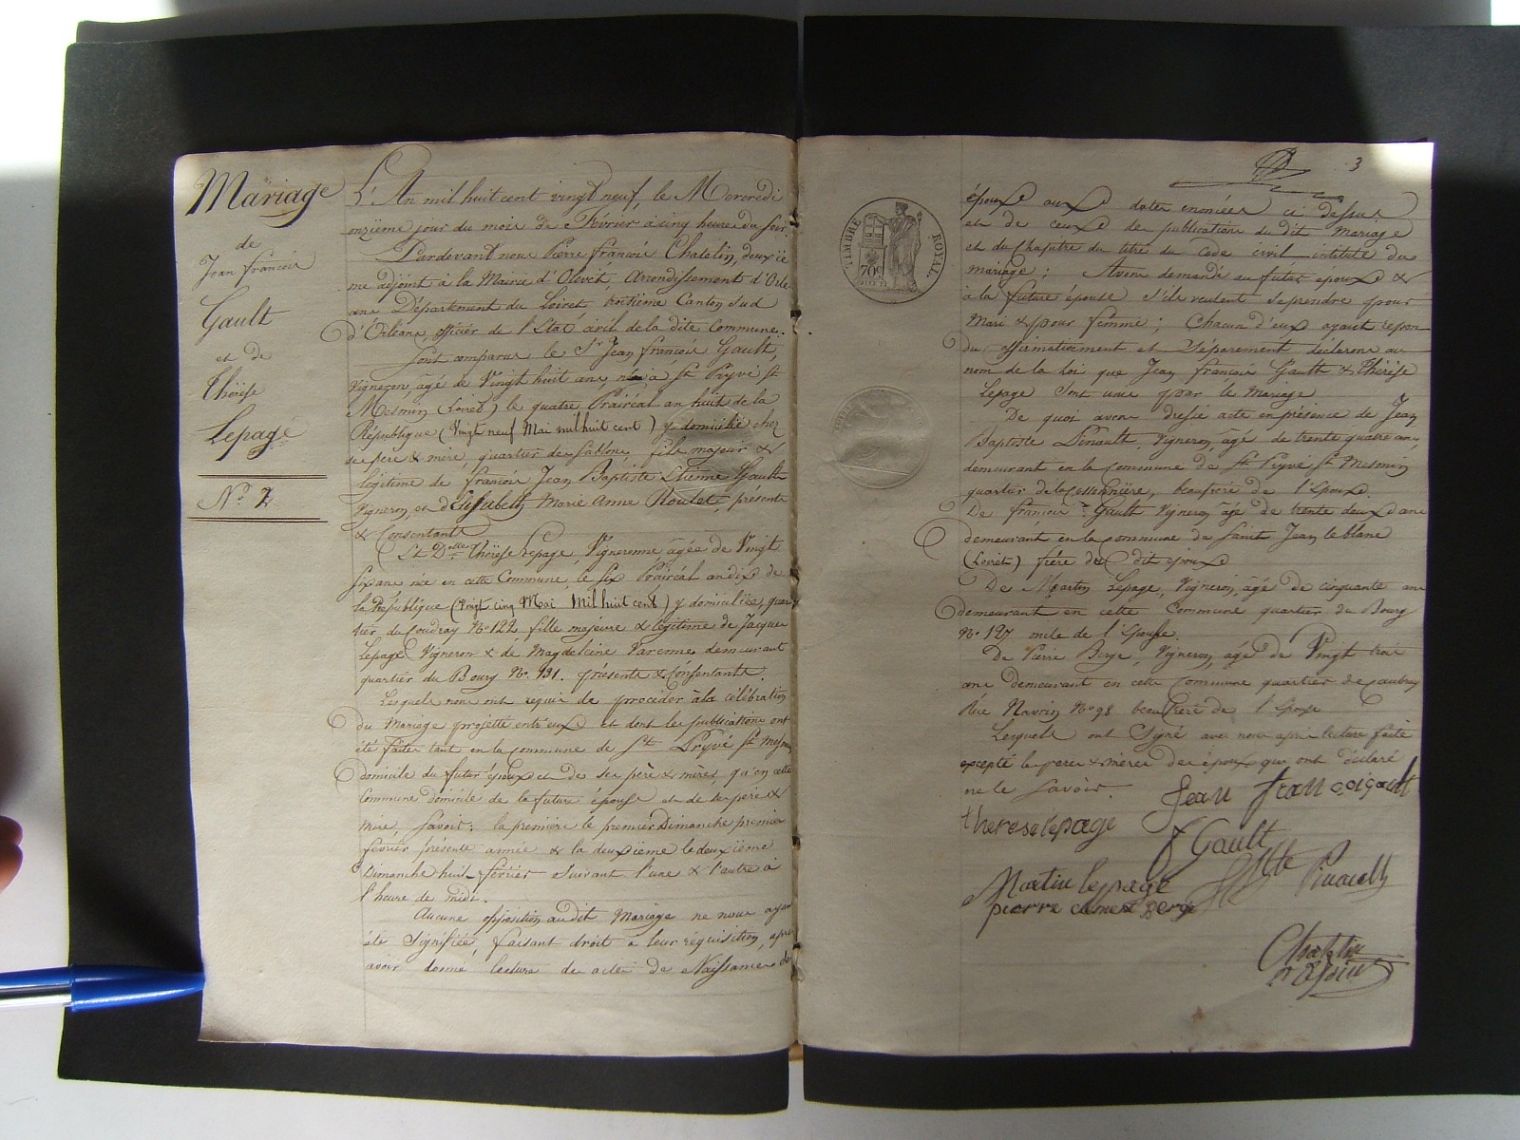 Mariage
de
Jean françois
Gault
et de
Thérèse
Lepage
N.º 2
L'An mil huit cent vingt neuf, le Mercredi
onzieme jour du mois de Février à cinq heures du soir
Pardevant nous Pierre françois Chatelin, deuxiè
me adjoint à la Mairie d'Olivet, Arrondissement d'Orlé
ans Département du Loiret, Canton Sud
d'Orléans, officier de l'Etat civil de la dite Commune.
Sont comparus le Sr Jean françois Gault,
Vigneron, âgé de Vingt huit ans, né à St Pryvé St
Mesmin (Loiret) le quatre Prairéal an huit de la
République (Vingt neuf Mai mil huit cent) y domicilié chez
ses père & mère, quartier des Sablons, fils majeur &
légitime de françois Jean Baptiste Etienne Gault
Vigneron, et d'Elisabeth Marie Anne Roulet, présents
& Consentants
Et Delle Thérèse Lepage, Vigneronne, âgée de Vingt
six ans née en cette Commune, le Six Prairéal an dix de
la République (Vingt cinq Mai Mil huit cent) y domiciliée, quar
tier du Coudray N.º 122 fille majeure & légitime de Jacques
Lepage Vigneron & de Magdeleine Varenne demeurant
quartier du Bourg N.º 131. présents & Consentants.
Lesquels nous ont requis de proceder à la célébration
du Mariage projetté entr'eux et dont les publications ont
été faites tant en la commune de St Pryvé St Mesmin
domicile du futur époux et de ses père & mères, qu'en cette
Commune domicile de la future épouse et de ses père &
mère, Savoir; la première le premier Dimanche premier
février présente année & la deuxieme le deuxième
Dimanche huit février suivant l'une & l'autre à
l'heure de midi.
Aucune opposition audit Mariage ne nous ayant
été Signifiée, faisant droit à leur réquisition, après
avoir donné lecture des actes de Naissances des
3
TIMBRE ROYAL
70c
époux aux dates énoncées ci dessus
et de ceux des publications du dit Mariage
et du Chapitre du titre du Code civil, intitulé du
mariage; Avons demandé au futur époux &
à la future épouse S'ils veulent se prendre pour
Mari & pour femme; Chacun d'eux ayant répon
du affirmativement et Séparement déclarons au
nom de la Loi que Jean françois Gault & Thérèse
Lepage Sont unis par le Mariage
De quoi avons dressé acte en présence de Jean
Baptiste Vigneron, âgé de trente quatre ans,
demeurant en la commune de St Pryvé St Mesmin
quartier de la beaufrere de l'Epoux.
De françois Gault Vigneron âgé de trente deux ans
demeurant en la commune de Saint Jean le blanc
(Loiret) frère du dit époux
De Martin Lepage, Vigneron, âgé de cinquante ans
demeurant en cette Commune quartier du Bourg
N.º 127 oncle de l'Epouse.
De Pierre Vigneron, âgé de Vingt trois
ans demeurant en cette Commune quartier de
N.º 98 beaufrere de l'Epouse
Lesquels ont Signé avec nous après lecture faite
excepté les peres & mères des époux qui ont déclaré
ne le Savoir.
Jean françois gault
therese lepage
f Gault
Martin lepage
pierre
Chatelin
adjoint